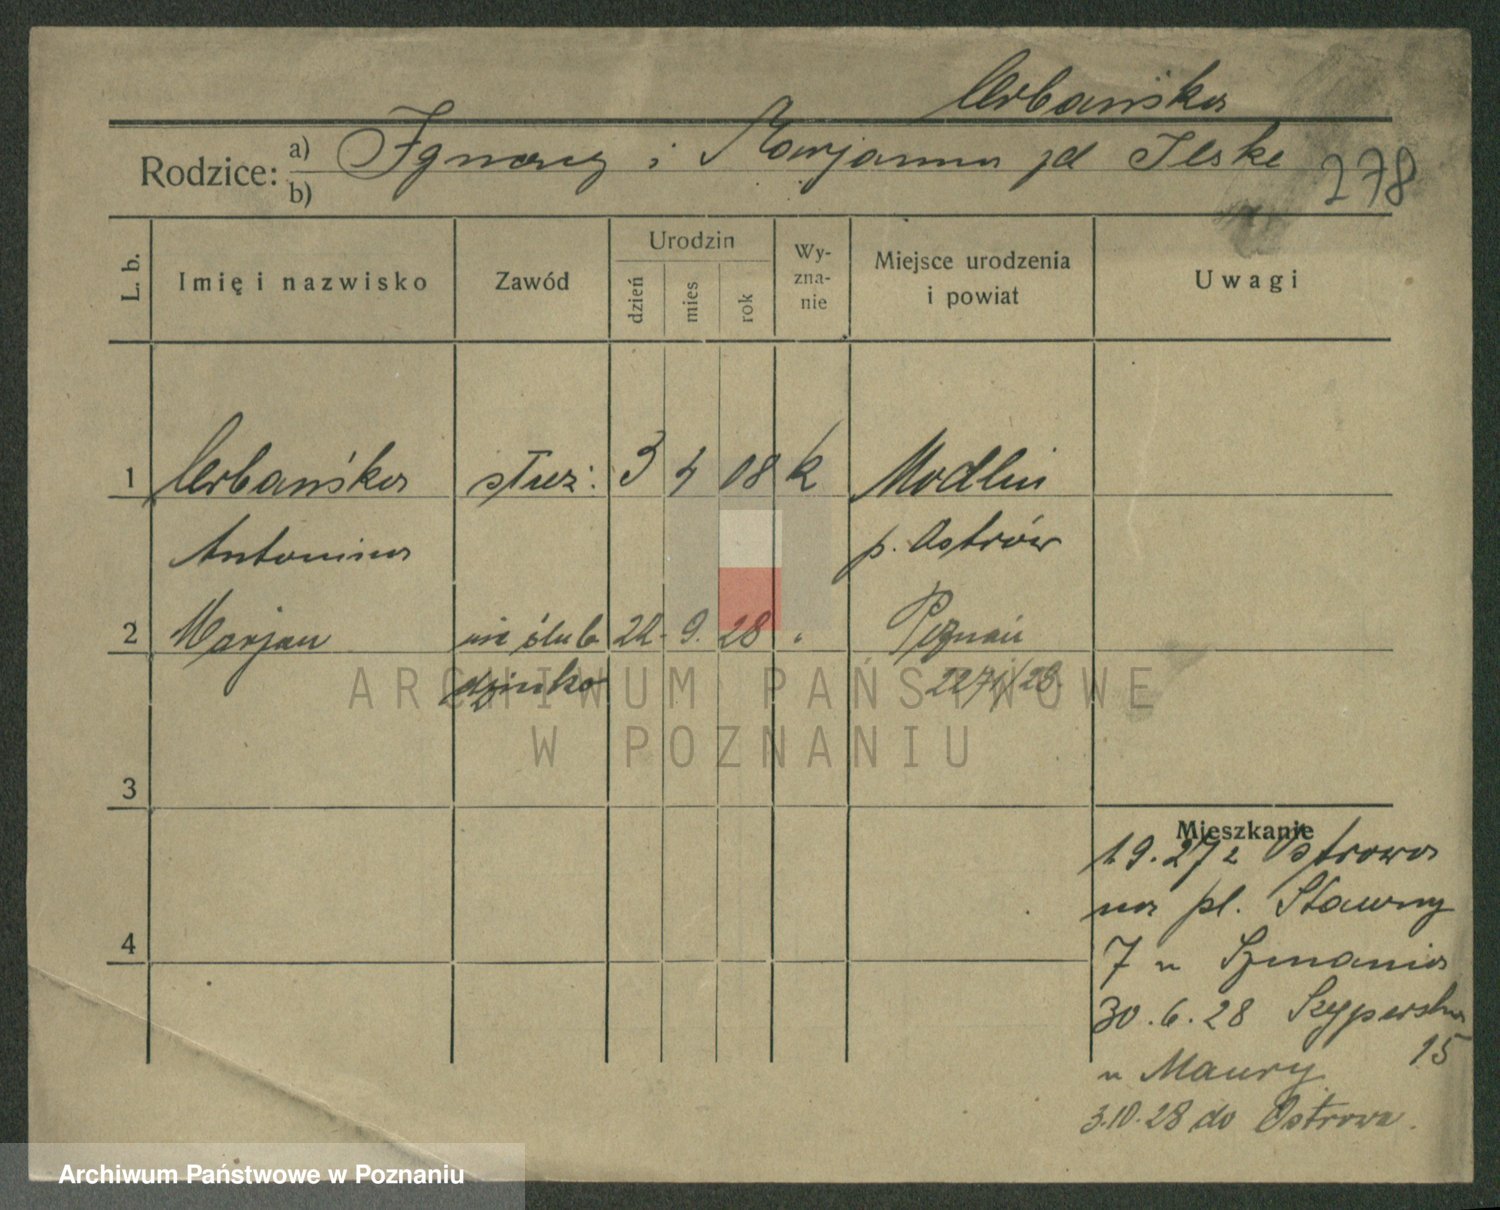 Urbańska
Rodzice: a) Ignacy i Marjanna jd Ilske
b)
278
L. b.
Imię i nazwisko
Zawód
Urodzin
dzień
mies
rok
Wy-
zna-
nie
Miejsce urodzenia
i powiat
Uwagi
1 Urbańska służ: 3 4 08 k Modlin
Antonina p. Ostrów
2 Marjan nie ślub 22. 9. 28 " Poznań
dziecko 2271/28.
3
Mieszkanie
1.9.27 z Ostrowa
na pl. Stawny
4
7 u Szmania
30.6.28 Szyperska
15
u Maury
3.10.28 do Ostrowa.
ARCHIWUM PAŃSTWOWE
W POZNANIU
Archiwum Państwowe w Poznaniu